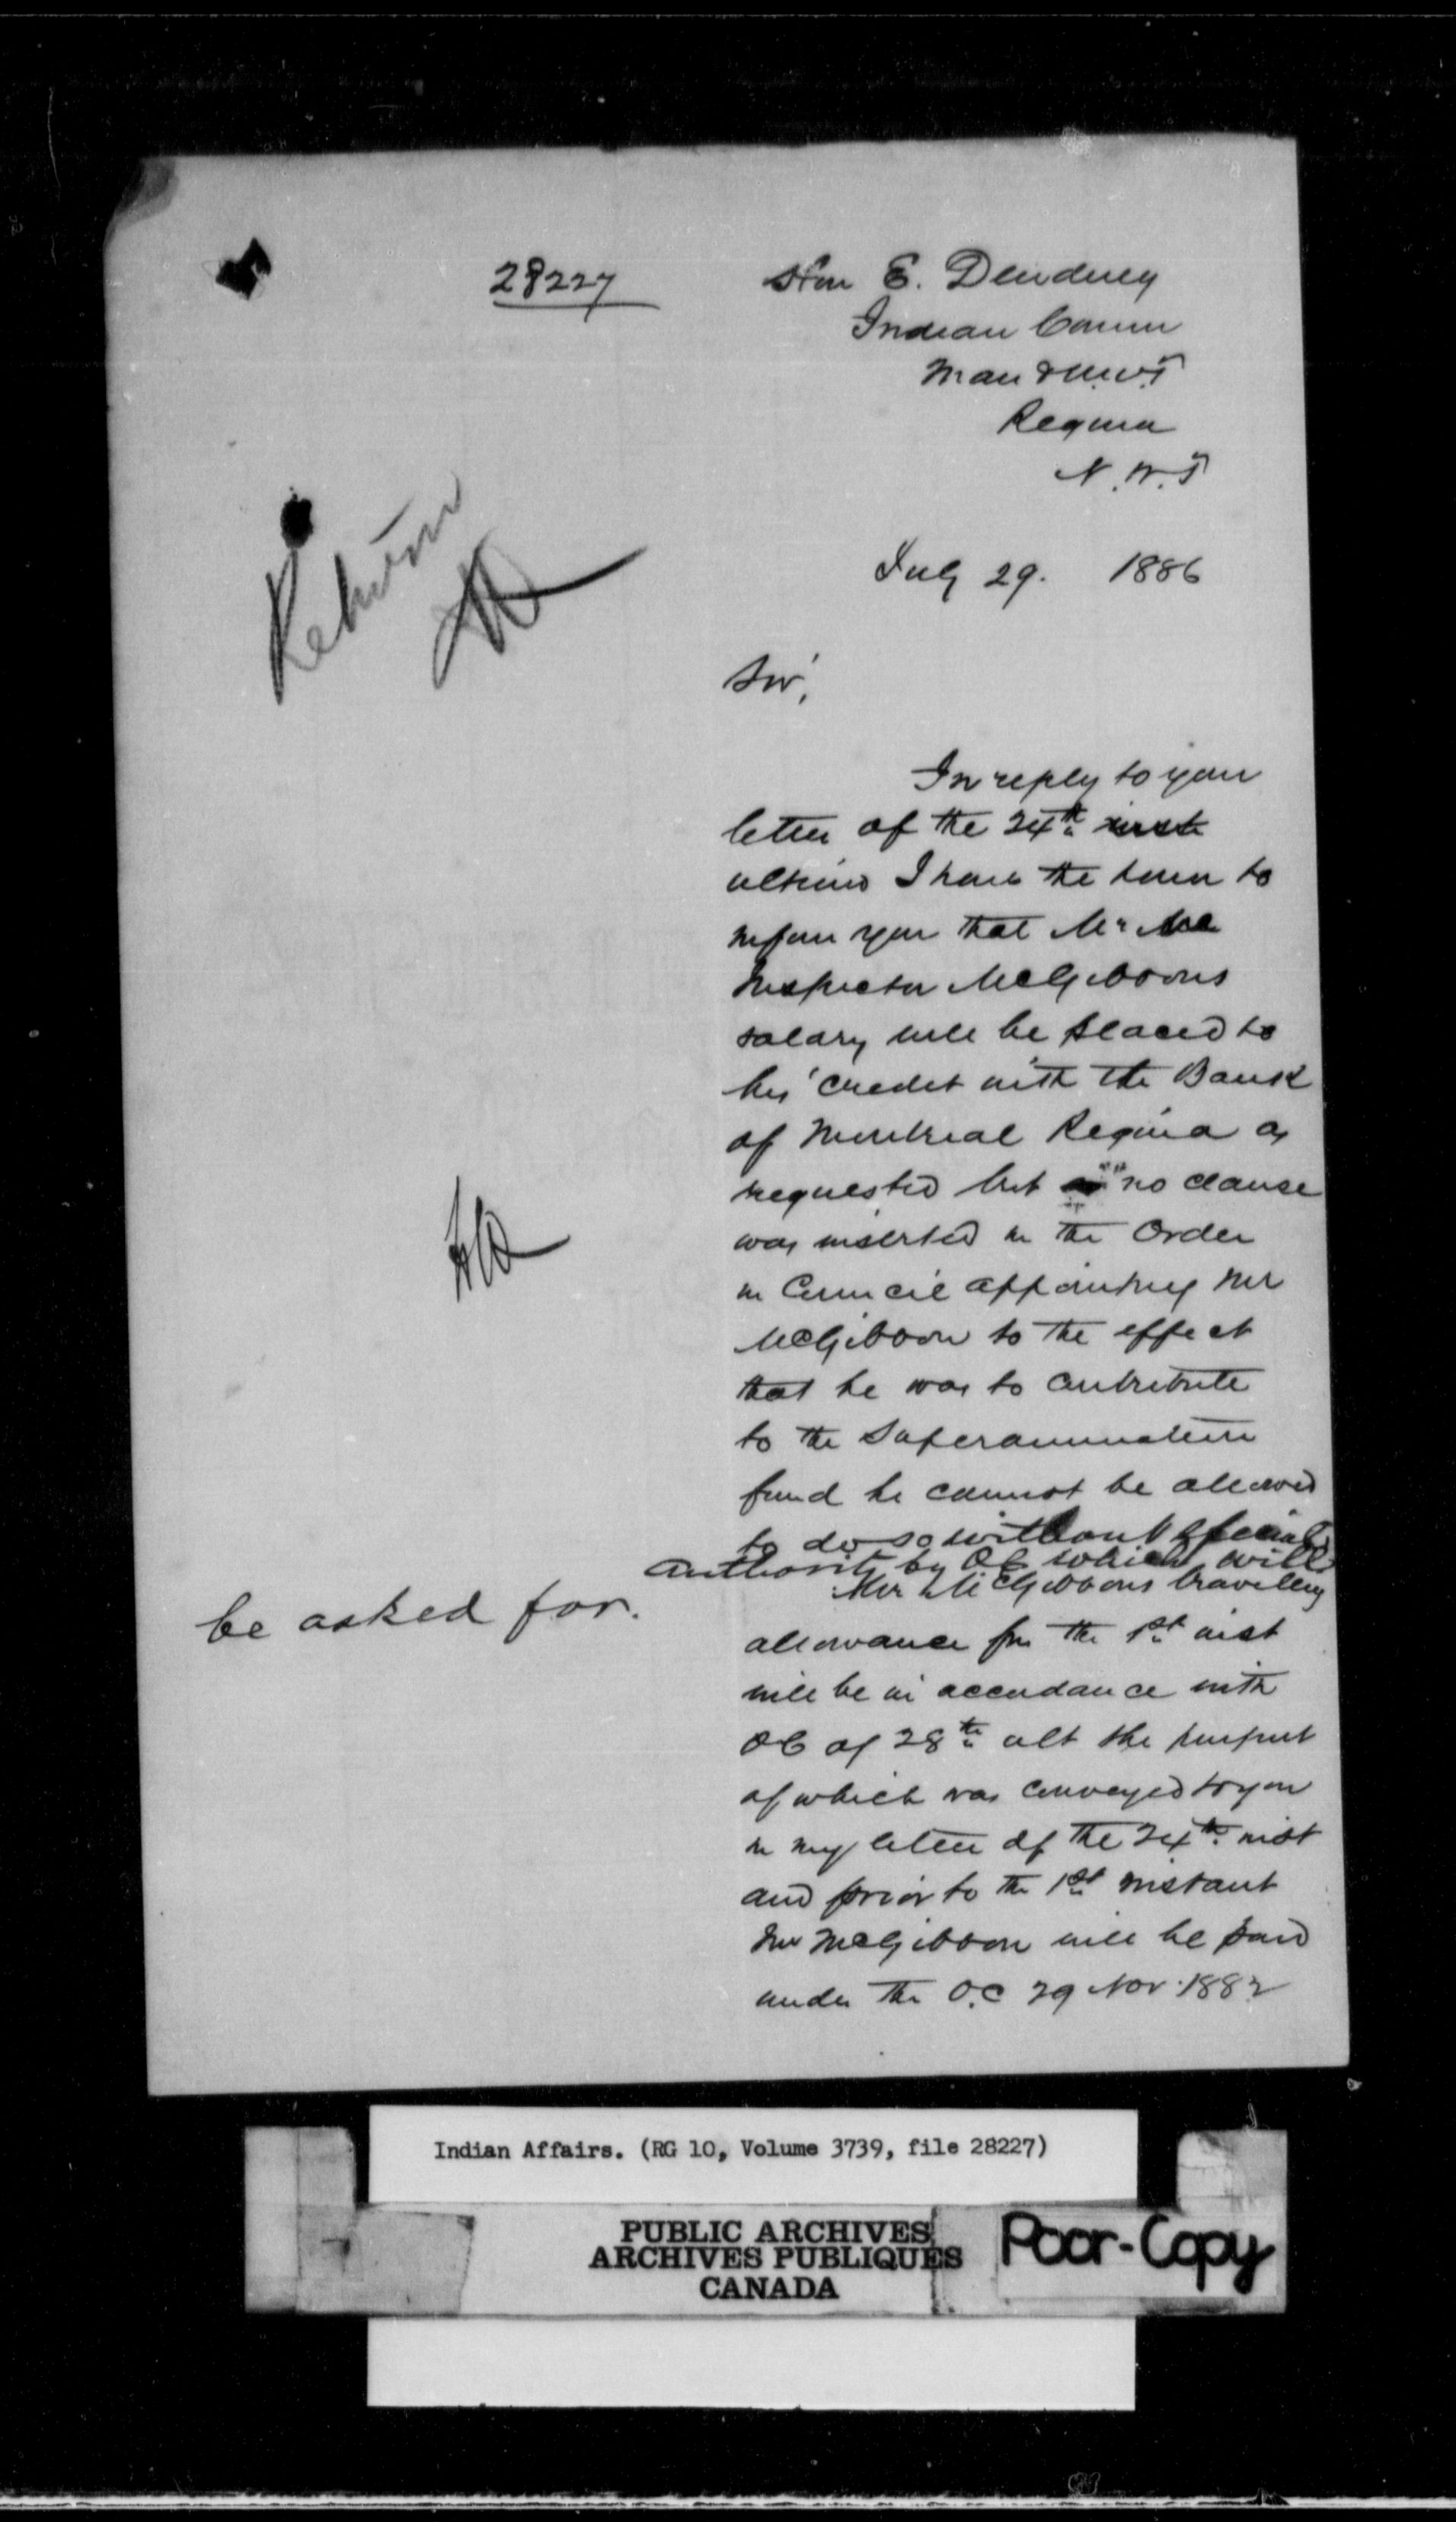 28227
Hon E. Dewdney
Indian Comm
Man & N.W.T
Regina
N.W.T
Return
July 29. 1886
Sir,
In reply to your
letter of the 24th inst
ultimo I have the honor to
inform you that Mr Mc
Inspector McGibbons
salary will be placed to
his credit with the Bank
of Montreal Regina as
requested but as no clause
was inserted in the Order
in Council appointing Mr
McGibbon to the effect
that he was to contribute
to the Superannuation
fund he cannot be allowed
to do so without special
authority by OC which will
be asked for.
Mr McGibbons travelling
allowance from the 1st inst
will be in accordance with
OC of 28th ult the purport
of which was conveyed to you
in my letter of the 24th inst
and prior to the 1st instant
Mr McGibbon will be paid
under the O.C 29 Nov. 1882
Indian Affairs. (RG 10, Volume 3739, file 28227)
PUBLIC ARCHIVES
ARCHIVES PUBLIQUES
CANADA
Poor-Copy